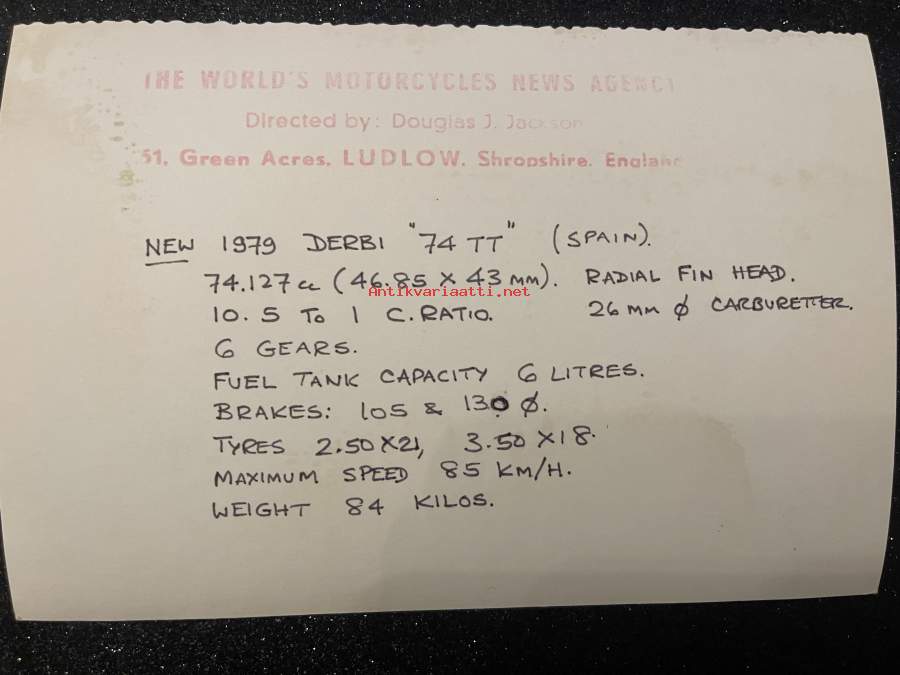 THE WORLD'S MOTORCYCLES NEWS AGENCY
Directed by: Douglas J. Jackson
51, Green Acres, LUDLOW, Shropshire, England
NEW 1979 DERBI "74 TT" (SPAIN).
74.127 cc (46.85 X 43 MM). RADIAL FIN HEAD.
Antikvariaatti.net
10.5 TO 1 C. RATIO. 26 MM Ø CARBURETTER.
6 GEARS.
FUEL TANK CAPACITY 6 LITRES.
BRAKES: 105 & 130 Ø.
TYRES 2.50X21, 3.50X18.
MAXIMUM SPEED 85 KM/H.
WEIGHT 84 KILOS.